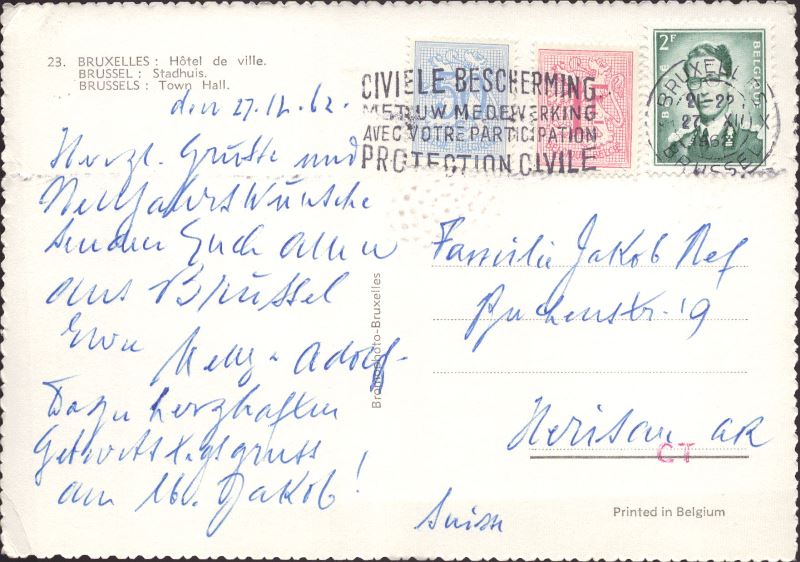 23. BRUXELLES : Hôtel de ville.
BRUSSEL : Stadhuis.
BRUSSELS : Town Hall.
CIVIELE BESCHERMING
MET UW MEDEWERKING
AVEC VOTRE PARTICIPATION
PROTECTION CIVILE
2F
BELGIE
BRUXELLES
21-22
27 XII
1962
BRUSSEL
den 27.12.62.
Herzl. Grüsse und
Neujahrswünsche
senden Euch allen
aus Brüssel
Eure Adolf
Dazu herzhaften
Geburtstagsgruss
am 16. Jakob!
Brom­photo-Bruxelles
Familie Jakob Nef
Buchenstr. 19
Herisau AR
CT
Suisse
Printed in Belgium